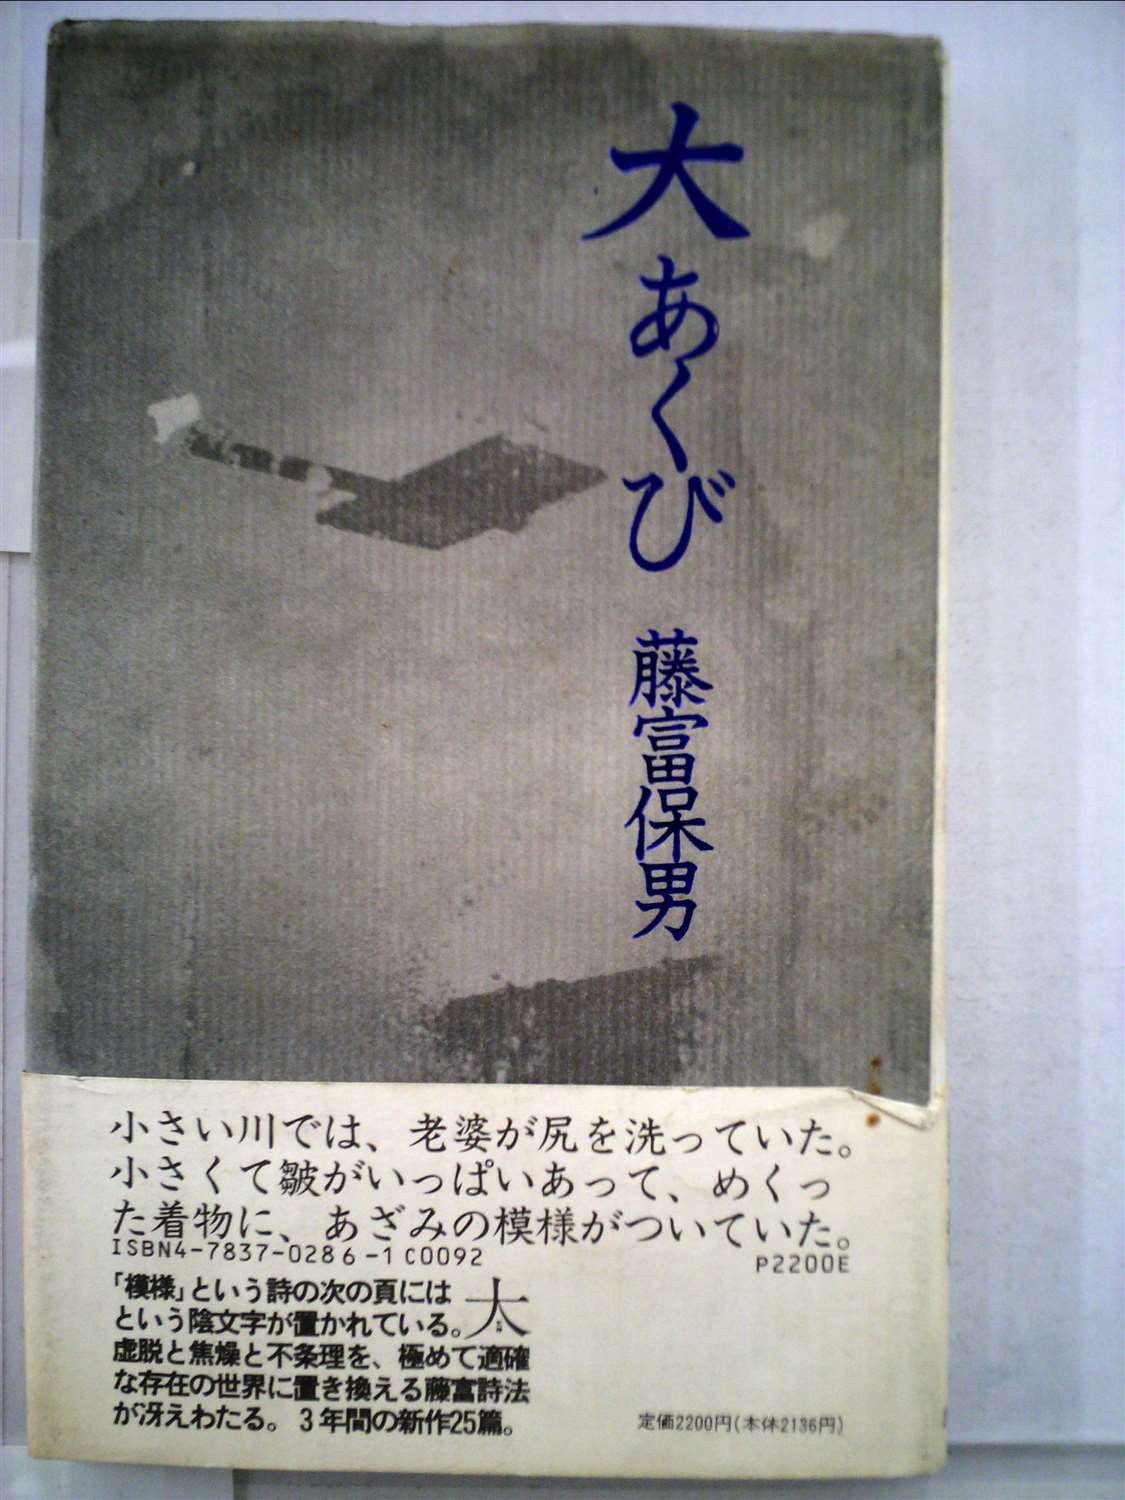 大あくび
藤富保男
小さい川では、老婆が尻を洗っていた。
小さくて皺がいっぱいあって、めくっ
た着物に、あざみの模様がついていた。
ISBN4-7837-0286-1 C0092
P2200E
「模様」という詩の次の頁には 大
という陰文字が置かれている。
虚脱と焦燥と不条理を、極めて適確
な存在の世界に置き換える藤富詩法
が冴えわたる。3年間の新作25篇。
定価2200円(本体2136円)